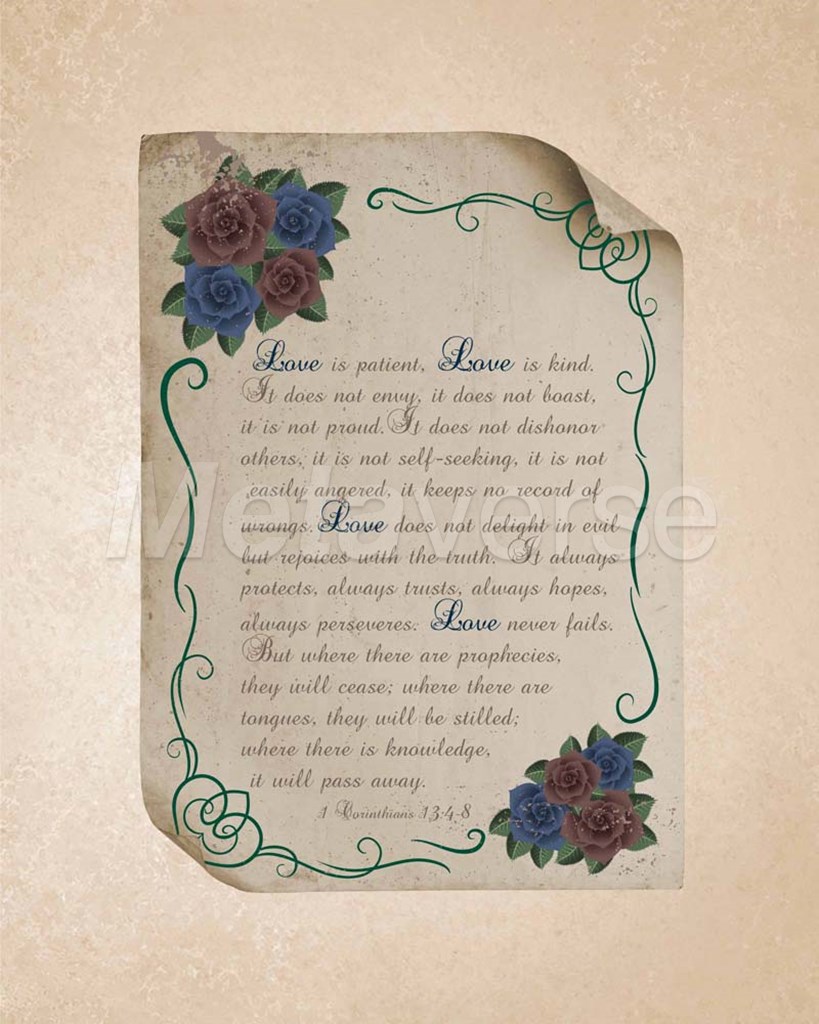 Love is patient, Love is kind.
It does not envy, it does not boast,
it is not proud. It does not dishonor
others, it is not self-seeking, it is not
easily angered, it keeps no record of
wrongs. Love does not delight in evil
but rejoices with the truth. It always
protects, always trusts, always hopes,
always perseveres. Love never fails.
But where there are prophecies,
they will cease; where there are
tongues, they will be stilled;
where there is knowledge,
it will pass away.
1 Corinthians 13:4-8
Metaverse